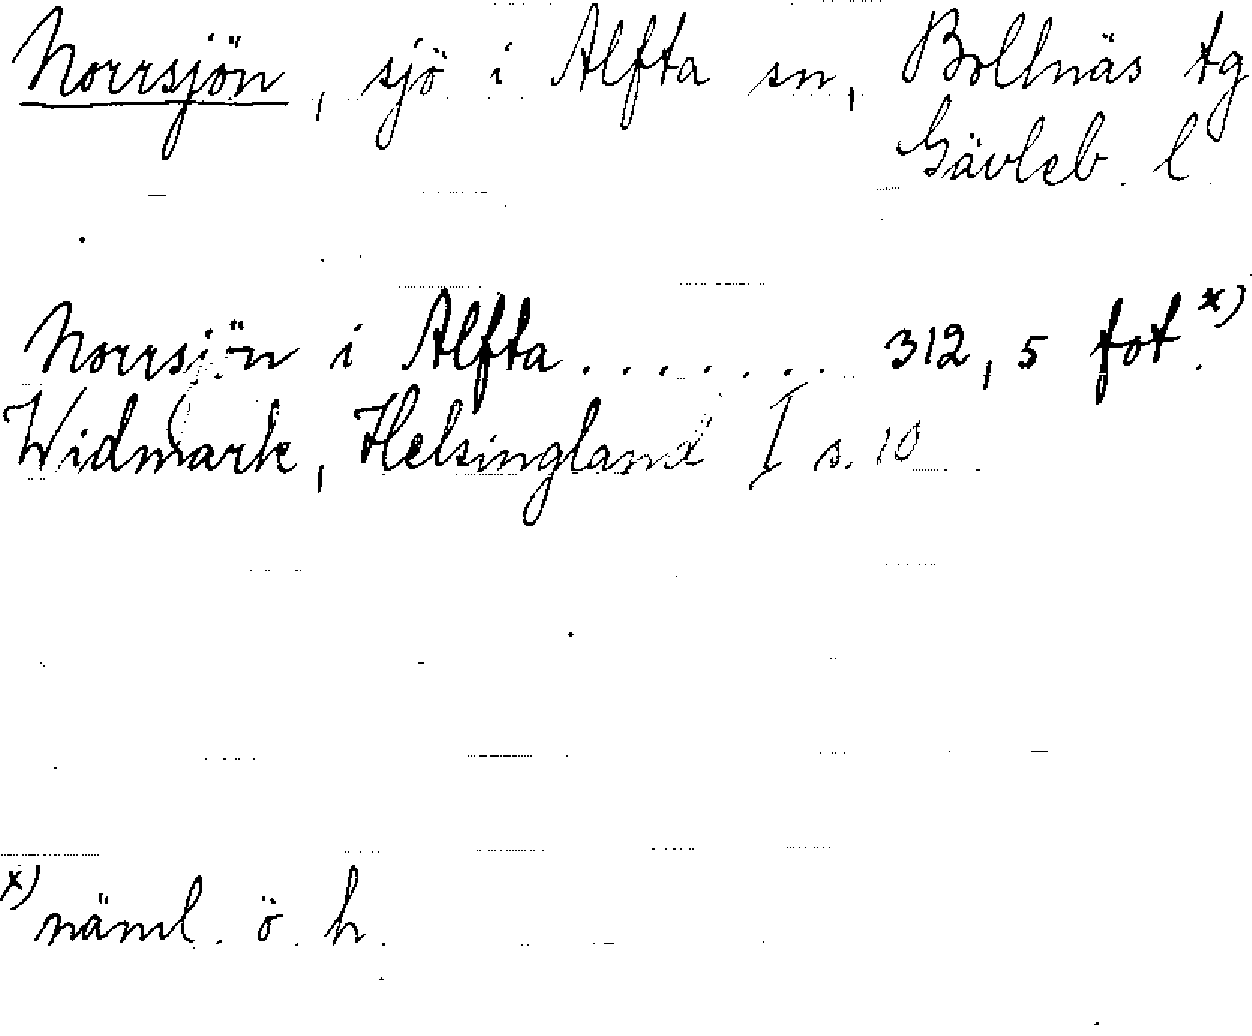 Norrsjön, sjö i Alfta sn, Bollnäs tg
Gävleb. l
Norrsjön i Alfta . . . . . . . 312,5 fot x).
Widmark, Helsingland I s. 10
x) näml. ö. h.